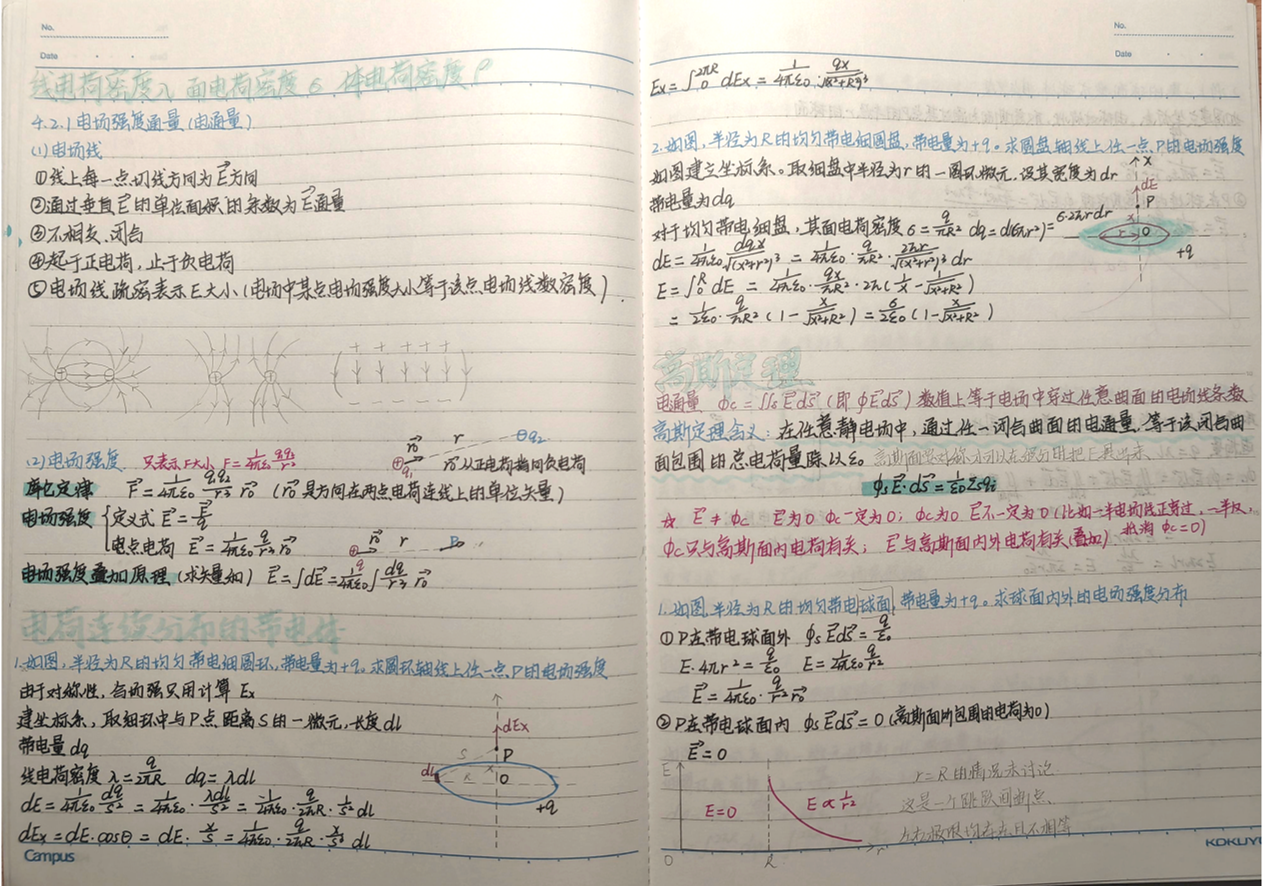 No.
Date
线电荷密度λ 面电荷密度σ 体电荷密度ρ
4.2.1 电场强度通量(电通量)
(1)电场线
①线上每一点切线方向为E⃗方向
②通过垂直E⃗的单位面积的条数为E⃗通量
③不相交、闭合
④起于正电荷,止于负电荷
⑤电场线疏密表示E大小(电场中某点电场强度大小等于该点电场线数密度)
+ + + + +
(2)电场强度 只表示F大小 F=1/4πε₀ q₁q₂/r²
r⃗₀ r ⊖q₂
⊕q₁ r⃗₀从正电荷指向负电荷
库仑定律 F⃗=1/4πε₀ q₁q₂/r² r⃗₀ (r⃗₀是方向在两点电荷连线上的单位矢量)
电场强度 定义式 E⃗=F⃗/q
电点电荷 E⃗=1/4πε₀ q/r² r⃗₀
⊕ r⃗₀ r P
电场强度叠加原理(求矢量和) E⃗=∫dE⃗=1/4πε₀∫dq/r² r⃗₀
电荷连续分布的带电体
1.如图,半径为R的均匀带电细圆环,带电量为+q。求圆环轴线上任一点P的电场强度
由于对称性,合场强只用计算 Ex
建坐标系,取细环中与P点距离S的一微元,长度dl
带电量dq
线电荷密度 λ=q/2πR dq=λdl
dE=1/4πε₀ dq/s²=1/4πε₀·λdl/s²=1/4πε₀·q/2πR·1/s² dl
dEx=dE·cosθ=dE·x/s=1/4πε₀·q/2πR·x/s³ dl
dEx
S P
x
dl R O
+q
Campus
No.
Date
Ex=∫₀^2πR dEx=1/4πε₀·qx/√(x²+R²)³
2.如图,半径为R的均匀带电细圆盘,带电量为+q。求圆盘轴线上任一点P的电场强度
如图建立坐标系。取细盘中半径为r的一圆环微元,设其宽度为dr
带电量为dq
对于均匀带电细盘,其面电荷密度σ=q/πR² dq=d(σπr²)=σ·2πrdr
dE=1/4πε₀ dqx/√(x²+r²)³=1/4πε₀·q/πR²·2πr/√(x²+r²)³ dr
E=∫₀^R dE=1/4πε₀·qx/πR²·2π(1/x-1/√(x²+R²))
=1/2ε₀·q/πR²(1-x/√(x²+R²))=σ/2ε₀(1-x/√(x²+R²))
x
dE
P
x
r O
+q
高斯定理
电通量 Φc=∬s E⃗ds⃗(即∮E⃗ds⃗)数值上等于电场中穿过任意曲面的电场线条数
高斯定理含义:在任意静电场中,通过任一闭合曲面的电通量,等于该闭合曲
面包围的总电荷量除以ε₀
∮s E⃗·ds⃗=1/ε₀ Σqi
☆ E⃗≠Φc E⃗为0 Φc一定为0; Φc为0 E⃗不一定为0(比如一半电场线正穿过,一半反,
抵消 Φc=0)
Φc只与高斯面内电荷有关; E⃗与高斯面内外电荷有关(叠加)
1.如图,半径为R的均匀带电球面,带电量为+q。求球面内外的电场强度分布
①P在带电球面外 ∮s E⃗ds⃗=q/ε₀
E·4πr²=q/ε₀ E=1/4πε₀ q/r²
E⃗=1/4πε₀·q/r² r⃗₀
②P在带电球面内 ∮s E⃗ds⃗=0(高斯面所包围的电荷为0)
E⃗=0
E
E=0 E∝1/r²
O R r
r=R的情况未讨论
这是一个跳跃间断点、
左右极限均存在且不相等
KOKUYO